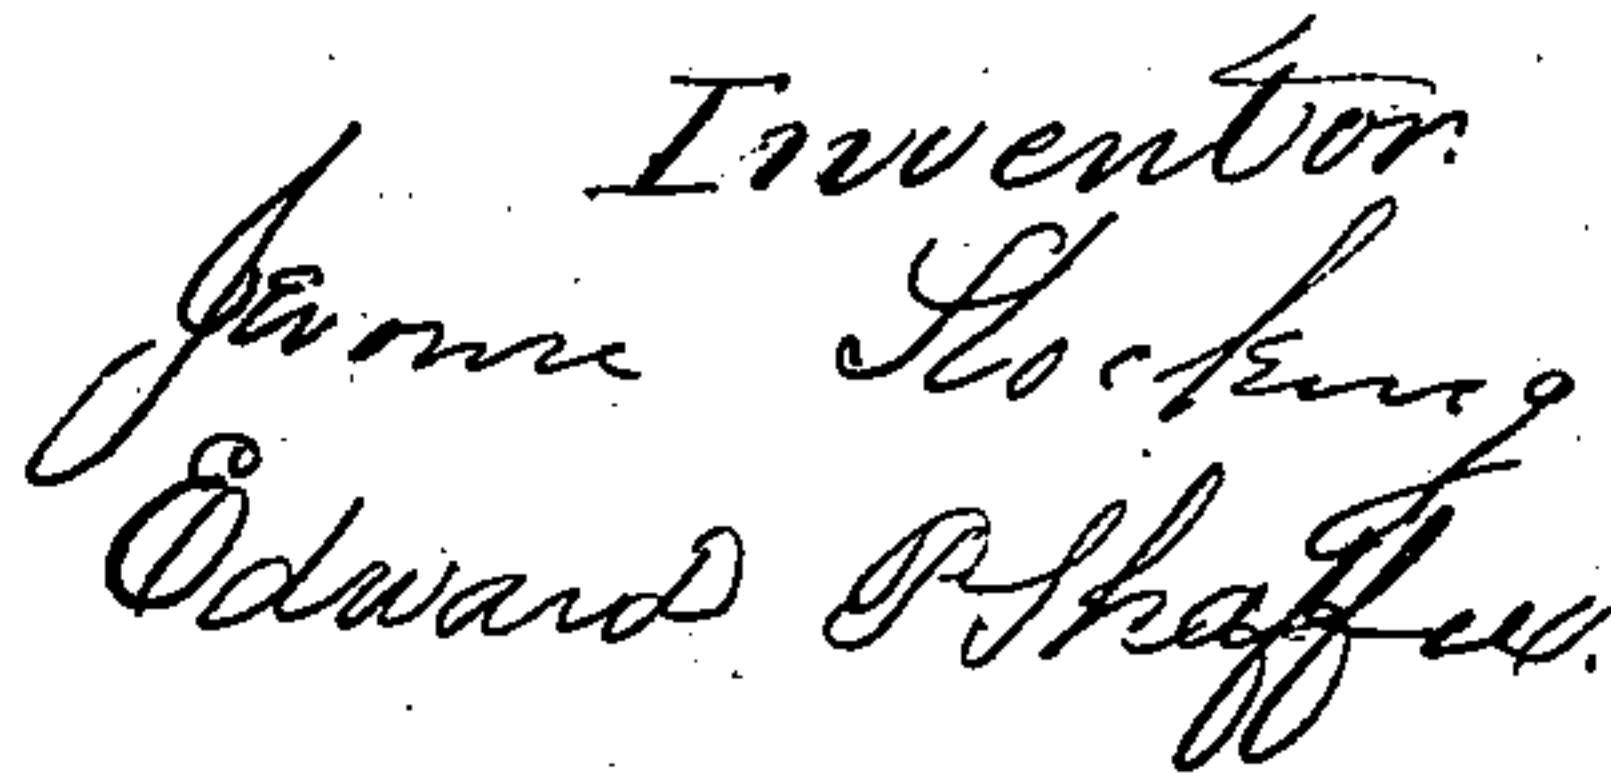 Inventor.
Jerome Stocking
Edward P Shaffer.